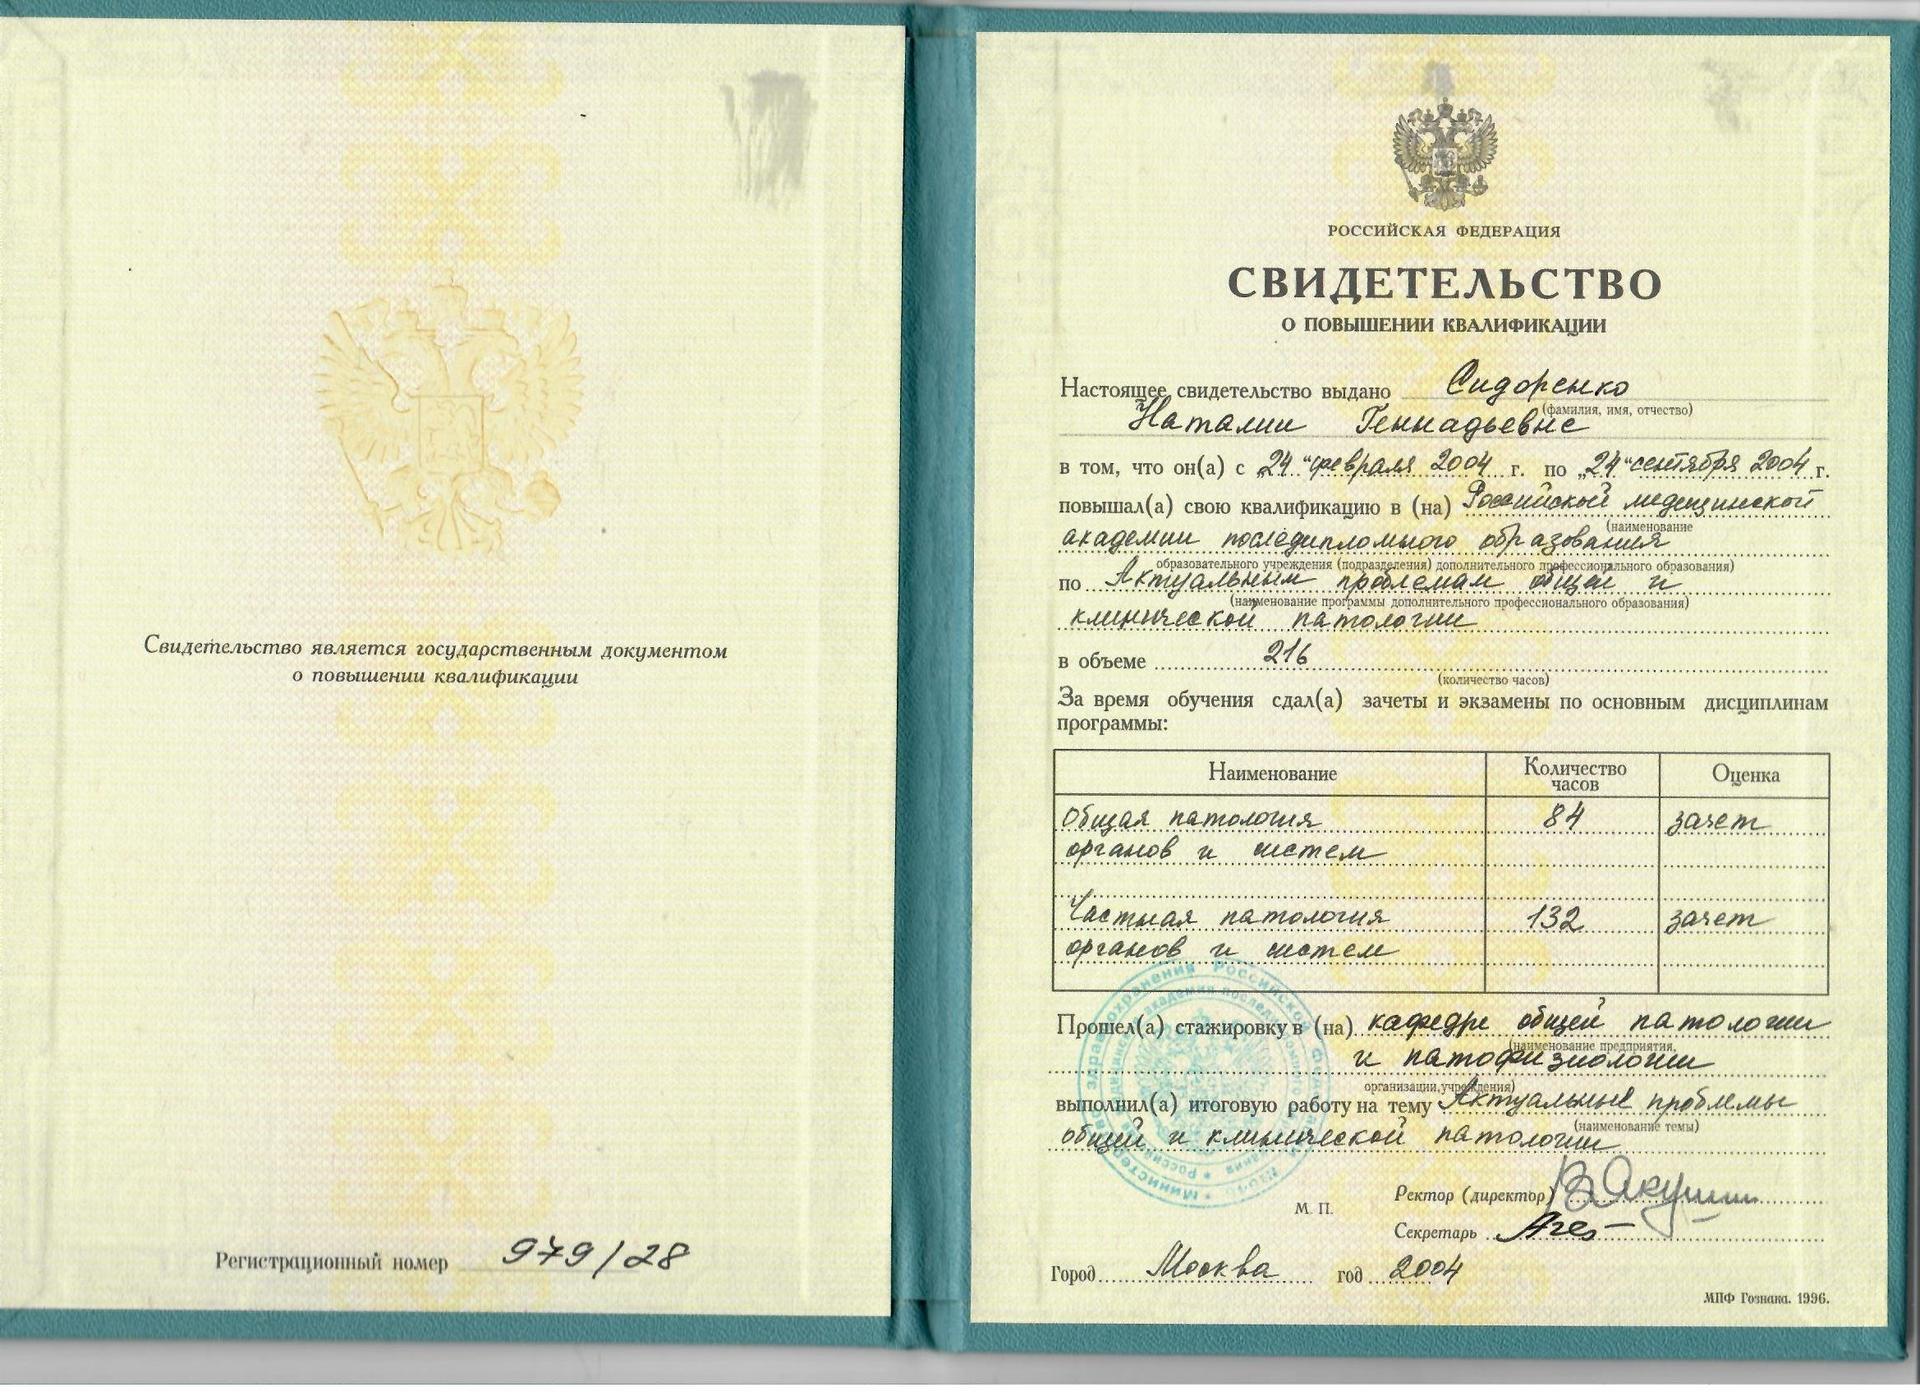 Свидетельство является государственным документом
о повышении квалификации
Регистрационный номер 979/28
РОССИЙСКАЯ ФЕДЕРАЦИЯ
СВИДЕТЕЛЬСТВО
О ПОВЫШЕНИИ КВАЛИФИКАЦИИ
Настоящее свидетельство выдано Сидоренко
(фамилия, имя, отчество)
Наталии Геннадьевне
в том, что он(а) с „24“ февраля 2004 г. по „24“ сентября 2004 г.
повышал(а) свою квалификацию в (на) Российской медицинской
(наименование
академии последипломного образования
образовательного учреждения (подразделения) дополнительного профессионального образования)
по Актуальным проблемам общей и
(наименование программы дополнительного профессионального образования)
клинической патологии
в объеме 216
(количество часов)
За время обучения сдал(а) зачеты и экзамены по основным дисциплинам
программы:
Наименование Количество часов Оценка
Общая патология 84 зачет
органов и систем
Частная патология 132 зачет
органов и систем
Прошел(а) стажировку в (на) кафедре общей патологии
(наименование предприятия,
и патофизиологии
организации, учреждения)
выполнил(а) итоговую работу на тему Актуальные проблемы
(наименование темы)
общей и клинической патологии
М. П.
Ректор (директор)
Секретарь
Город Москва год 2004
МПФ Гознака. 1996.